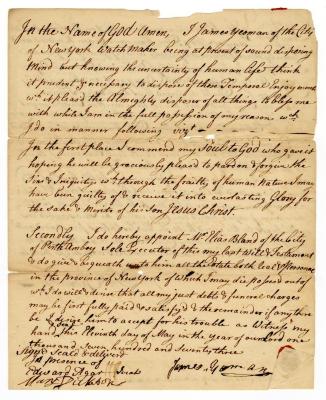 In the Name of God Amen, I James Yeoman of the City
of New York Watch maker being at present of sound disposing
Mind but knowing the uncertainty of human life & think
it prudent & necessary to dispose of those Temporal Enjoyments
wch it pleas'd the Almighty disposer of all things to bless me
with whilst I am in the full possession of my reason wch
I do in manner following vizt.
In the first place I commend my Soul to God who gave it
hoping he will be graciously pleas'd to pardon & forgive the
Sins & Iniquitys wch through the frailty of human Nature I may
have been guilty of & receive it into everlasting Glory for
the sake & Merits of his Son Jesus Christ.
Secondly I do hereby appoint Mr Elias Bland of the City
of Perth Amboy Sole Executor of this my last Will & Testament
& do give & bequeath unto him all the Estate both Real & Personal
in the province of New York of which I may die possess'd out of
wch I do will & desire that all my just debts & funeral charges
may be first fully paid & satisfy'd & the remainder if any there
be I desire him to accept for his trouble as Witness my
hand this Eleventh day of May in the year of our Lord one
thousand seven hundred and seventy three
Sign'd Seal'd & deliver'd
In presence of us
Edward Agar
James Yeoman